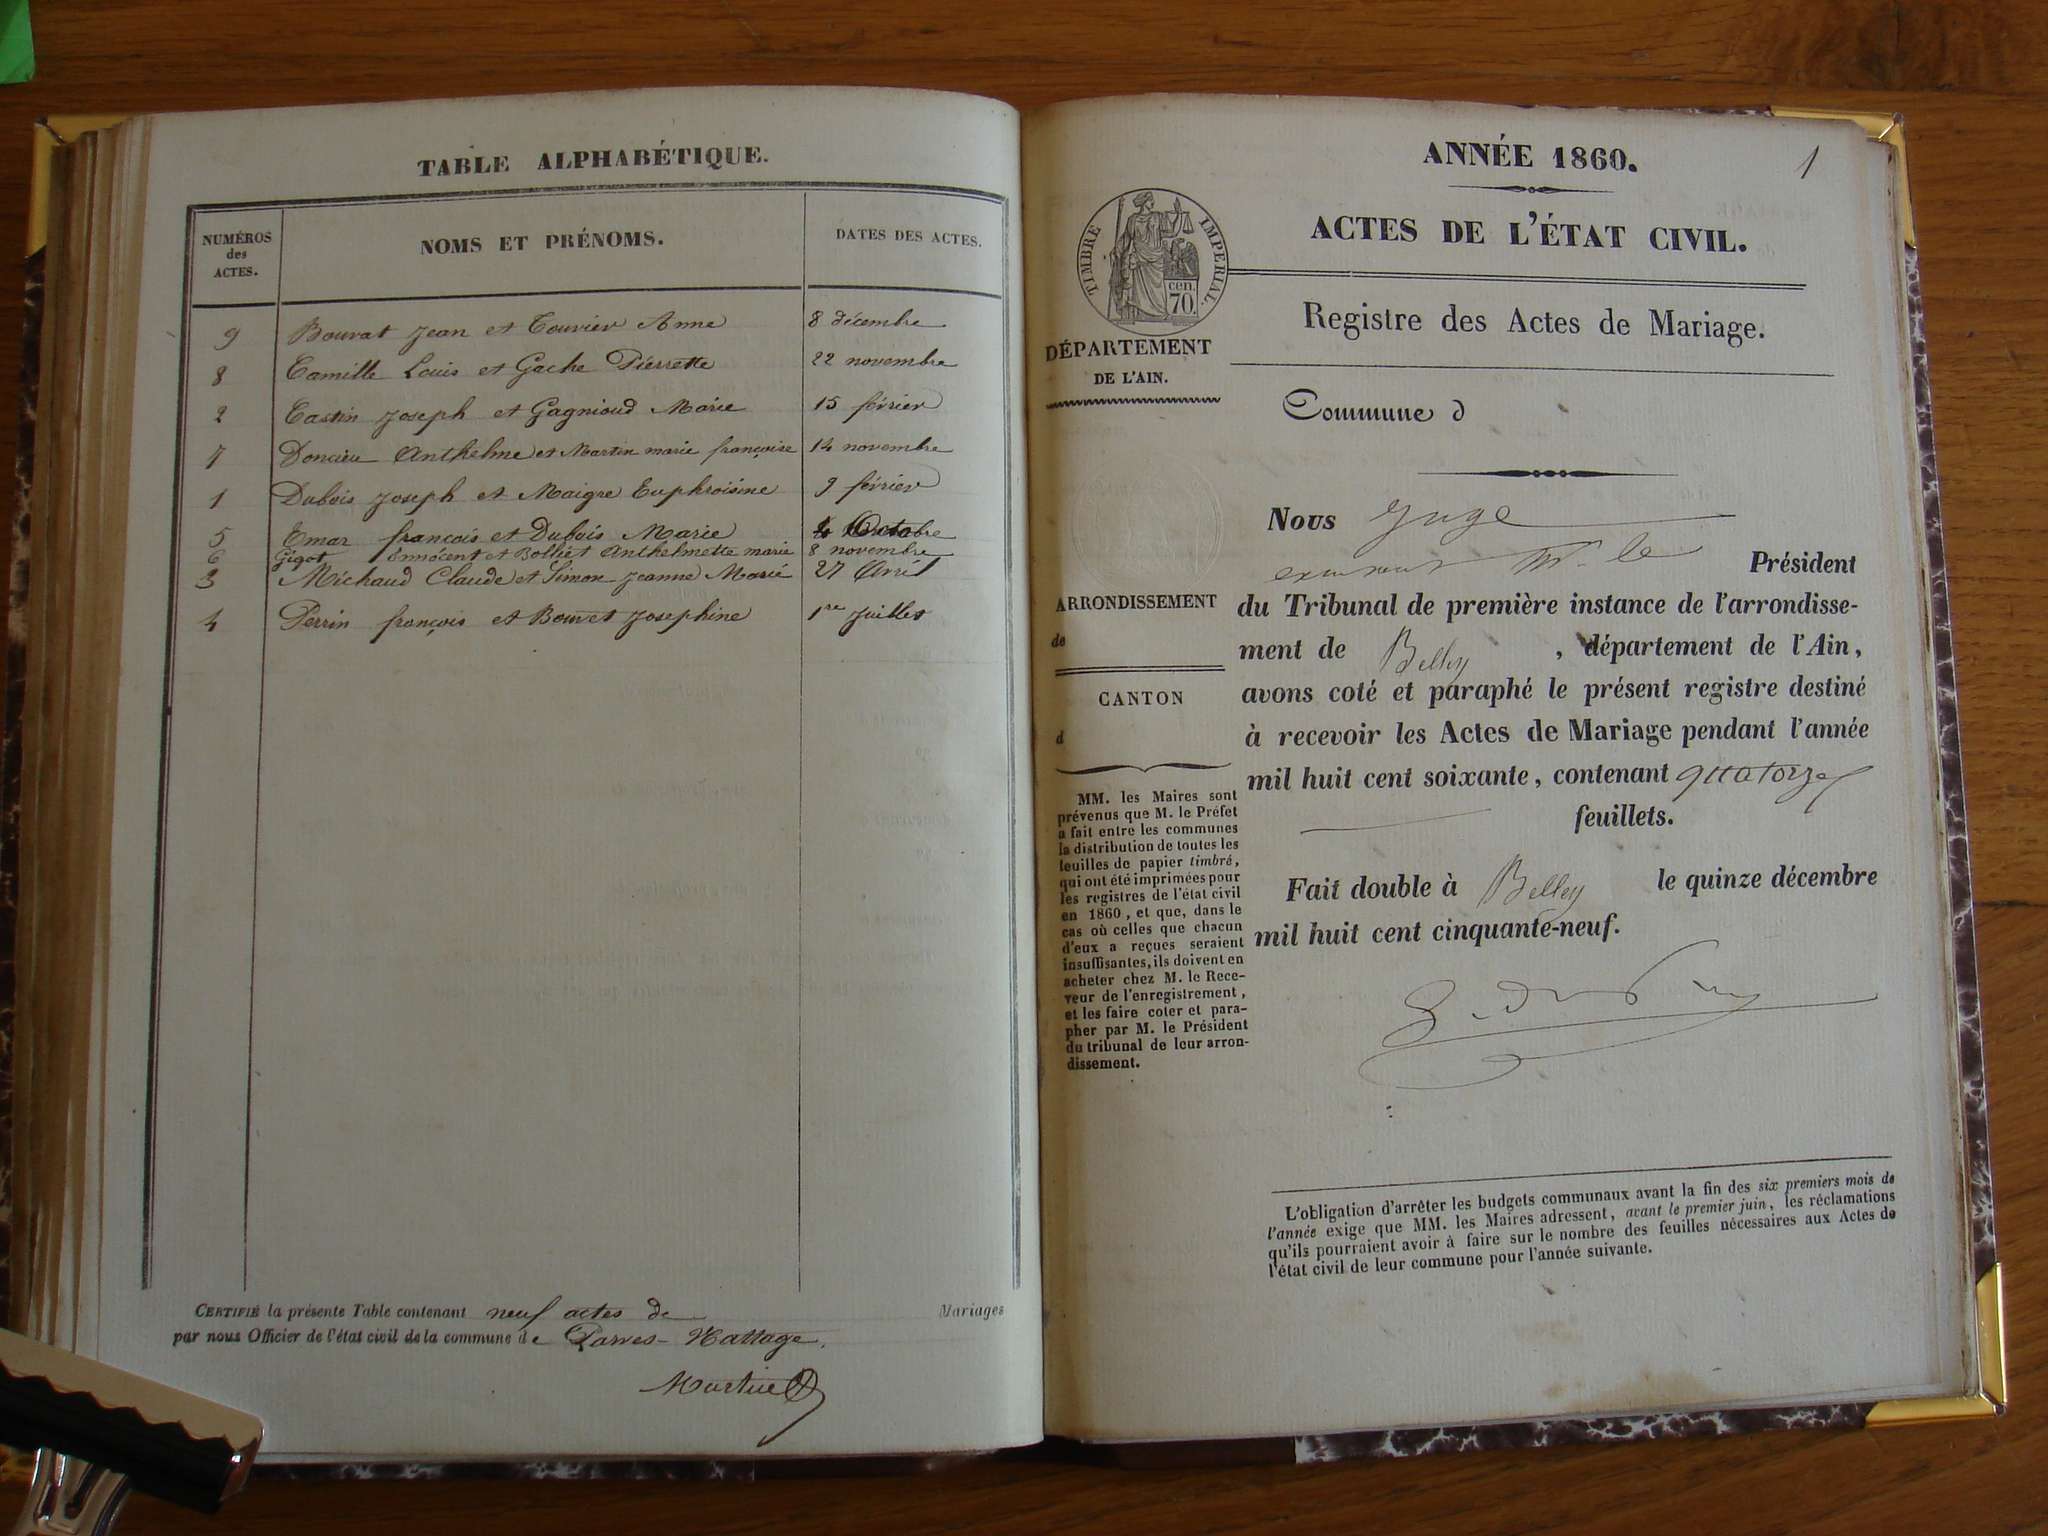 TABLE ALPHABÉTIQUE.
NUMÉROS des ACTES.
NOMS ET PRÉNOMS.
DATES DES ACTES.
9 Bouvat Jean et Touvier Anne 8 décembre
8 Camille Louis et Gache Pierrette 22 novembre
2 Castin Joseph et Gagnioud Marie 15 février
7 Doncieu Anthelme et Martin marie françoise 14 novembre
1 Dubois Joseph et Maigre Euphroisine 9 février
5 Emar françois et Dubois Marie Octobre
6 Gigot Innocent et Bolliet Anthelmette marie 8 novembre
3 Michaud Claude et Simon Jeanne Marie 27 Avril
4 Perrin françois et Bouvet Josephine 1re Juillet
CERTIFIÉ la présente Table contenant neuf actes de Mariages
par nous Officier de l'état civil de la commune de Parves-Nattage.
1
ANNÉE 1860.
ACTES DE L'ÉTAT CIVIL.
TIMBRE IMPÉRIAL.
cen.
70.
Registre des Actes de Mariage.
DÉPARTEMENT
DE L'AIN.
Commune d
Nous Juge
Mr. le Président
du Tribunal de première instance de l'arrondisse-
ment de Belley, département de l'Ain,
avons coté et paraphé le présent registre destiné
à recevoir les Actes de Mariage pendant l'année
mil huit cent soixante, contenant quatorze
feuillets.
Fait double à Belley le quinze décembre
mil huit cent cinquante-neuf.
ARRONDISSEMENT
de
CANTON
d
MM. les Maires sont
prévenus que M. le Préfet
a fait entre les communes
la distribution de toutes les
feuilles de papier timbré,
qui ont été imprimées pour
les registres de l'état civil
en 1860, et que, dans le
cas où celles que chacun
d'eux a reçues seraient
insuffisantes, ils doivent en
acheter chez M. le Rece-
veur de l'enregistrement,
et les faire coter et para-
pher par M. le Président
du tribunal de leur arron-
dissement.
L'obligation d'arrêter les budgets communaux avant la fin des six premiers mois de
l'année exige que MM. les Maires adressent, avant le premier juin, les réclamations
qu'ils pourraient avoir à faire sur le nombre des feuilles nécessaires aux Actes de
l'état civil de leur commune pour l'année suivante.